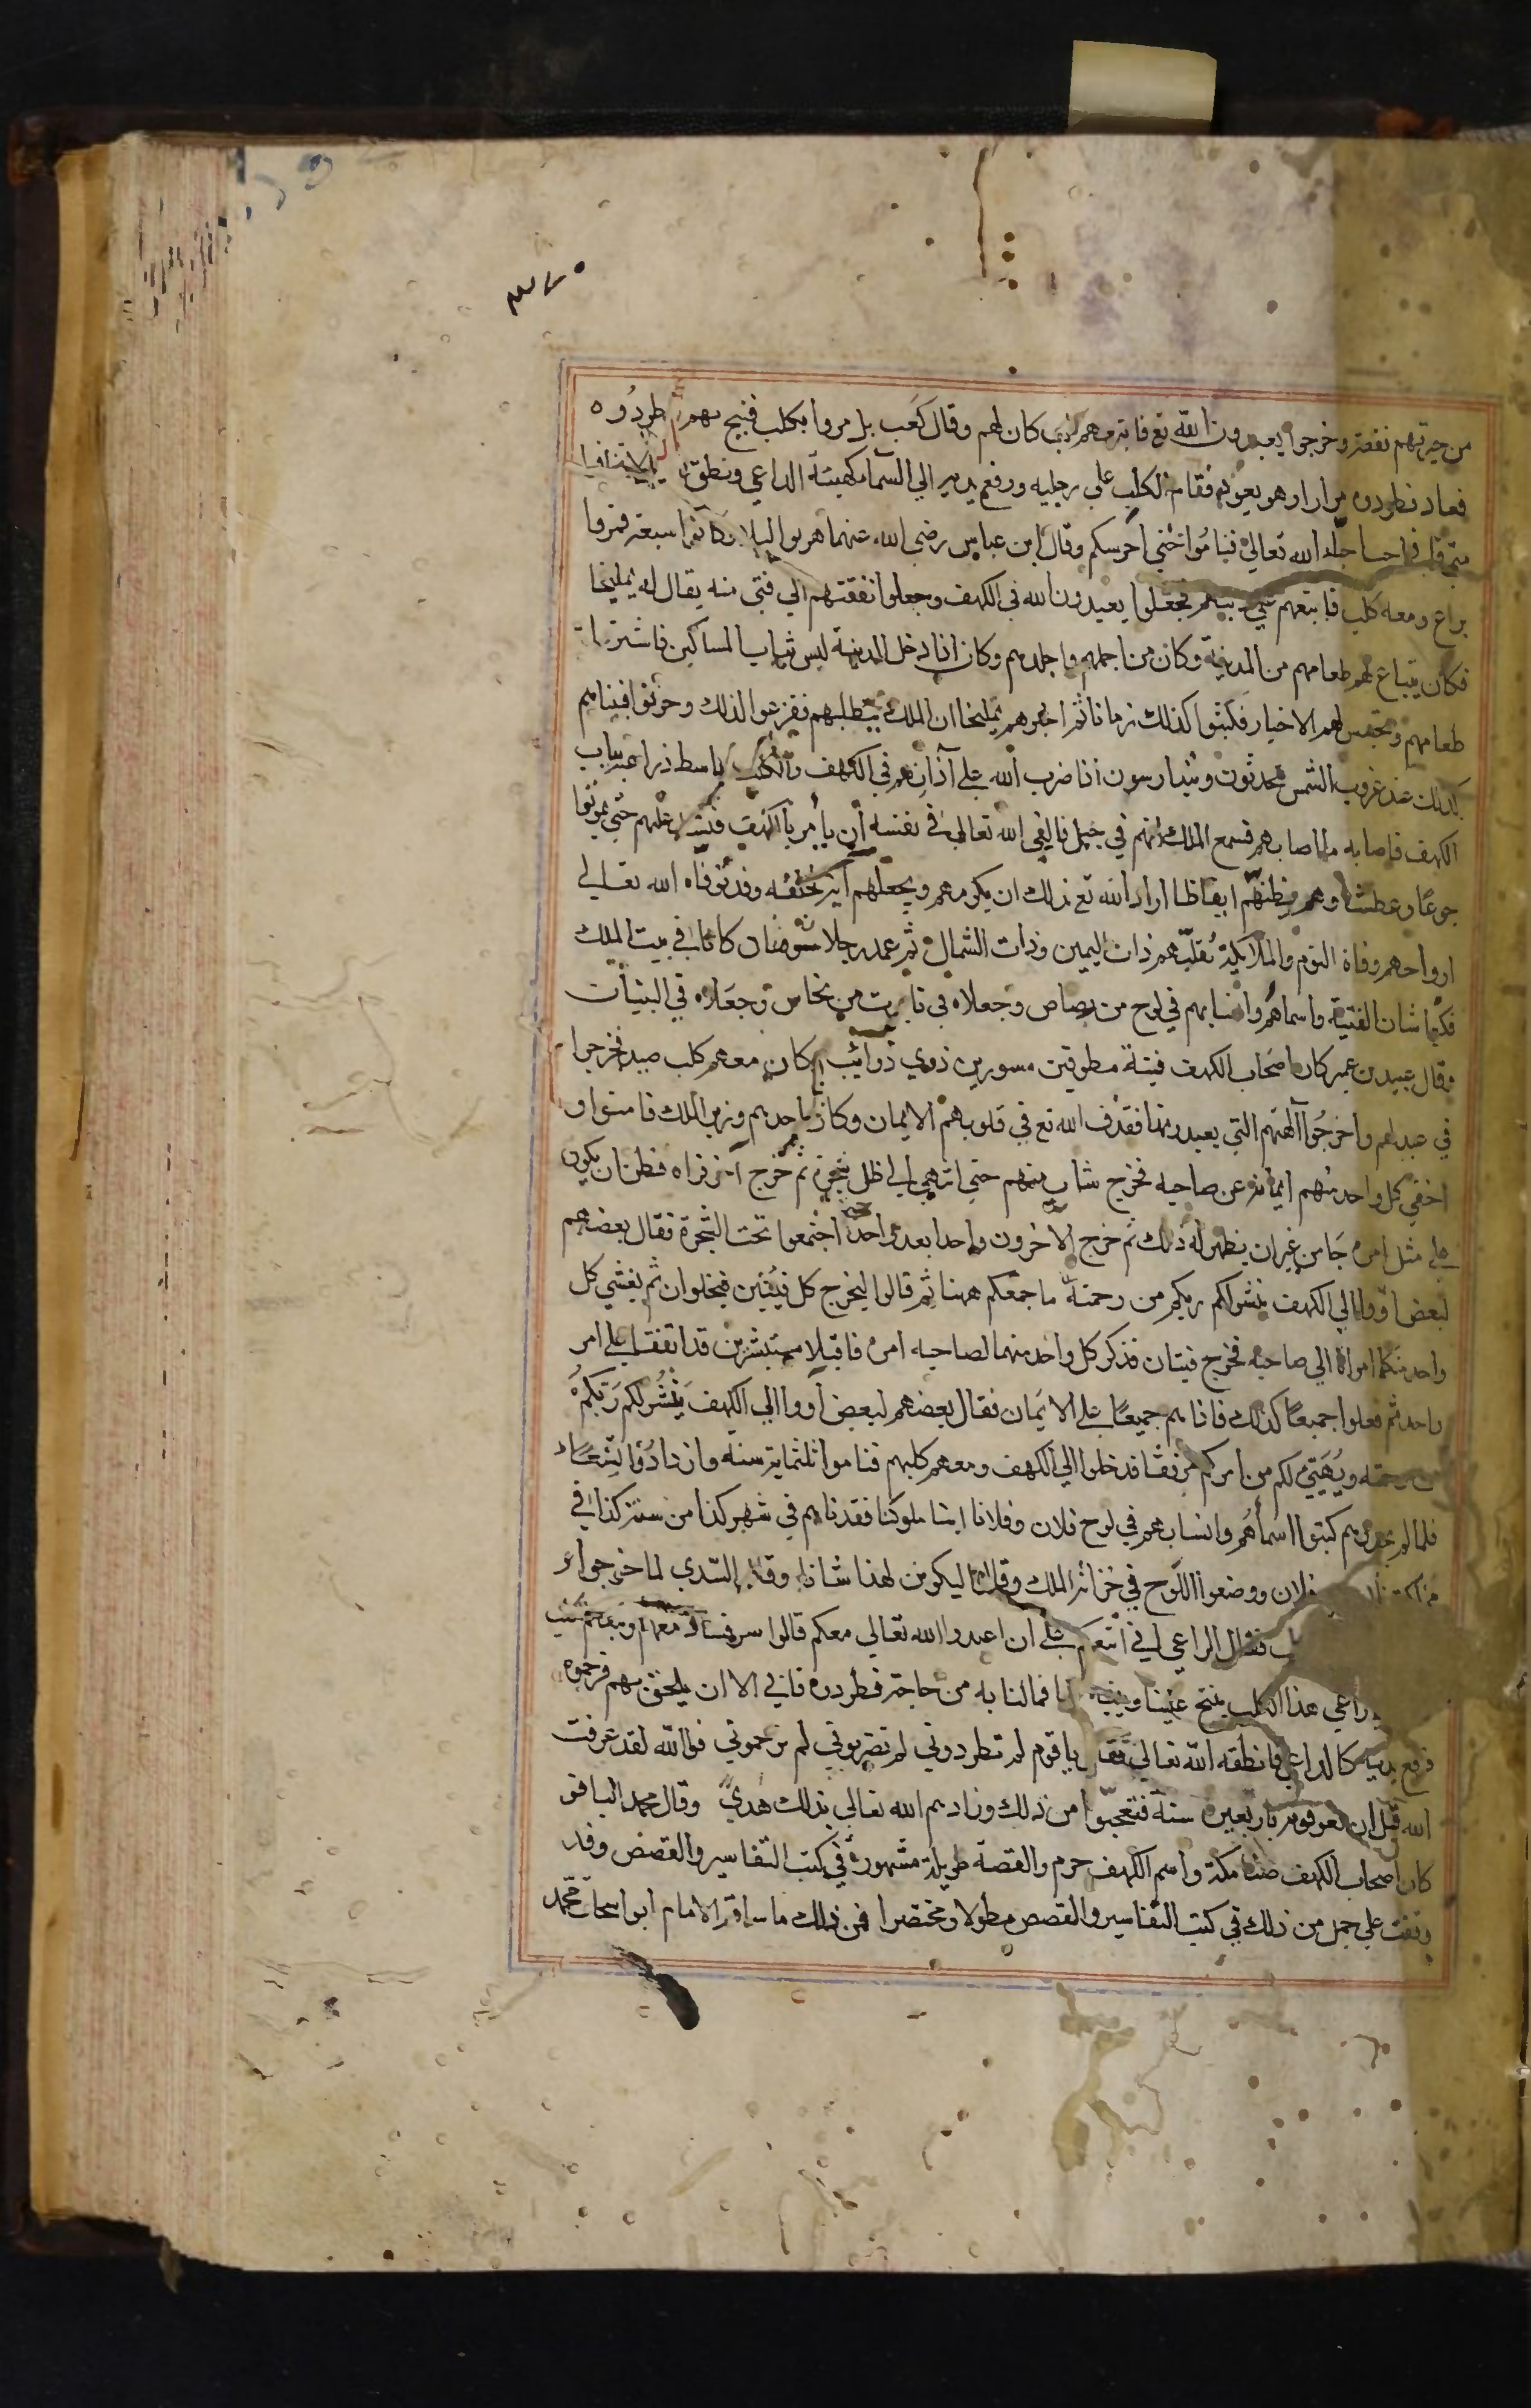 ٣٧٠
من خيرتهم نفقة وخرجوا يعبدون الله تع فاتبعهم كلب كان لهم وقال كَعب بل مروا بكلب فنبح بهم فطردُوه
فعاد فطردوه مرارا وهو يعود فقام الكلب على رجليه ورفع يديه الى السّما كهيئة الداعي ونطق لا تخافوا
مني فاني احب احبا الله تعالى فنامُوا حتي احرسكم وقال ابن عباس رضي الله عنهما هربوا ليلا وكانوا سبعة فمروا
براع ومعه كلب فاتبعهم على دينهم فجعلوا يعبدون الله في الكهف وجعلوا نفقتهم الي فتى منه يقال له يمليخا
فكان يبتاع لهم طعامهم من المدينة وكان من اجملهم واجلدهم وكان اذا دخل المدينة لبس ثياب المساكين فاشترى
طعامهم وتجسس لهم الاخبار فلبثوا كذلك زمانا ثم اخبرهم يمليخا ان الملك يتطلبهم ففزعوا لذلك وحزنوا فبيناهم
كذلك عند غروب الشمس يتحدثون ويتدارسون اذا ضرب الله على آذانهم في الكهف والكلب باسط ذراعيه بباب
الكهف فاصابه ما اصابهم فسمع الملك انهم في جبل فالقى الله تعالى في نفسه أن يأمر بالكهف فيسد عليهم حتى يموتوا
جوعًا وعطشا وهو يظنهم ايقاظا اراد الله تع بذلك ان يكرمهم ويجعلهم آية لخلقه وقد توفاه الله تعالى
ارواحهم وفاة النوم والملايكة تُقلبهم ذات اليمين وذات الشمال ثم عمد رجلان مؤمنان كانا في بيت الملك
فكتبا شان الفتية واسماهم وانسابهم في لوح من رصاص وجعلاه في تابوت من نحاس وجعلاه في البنيان
وقال عبيد بن عمير كان اصحاب الكهف فتية مطوقين مسورين ذوي ذوائب وكان معهم كلب صيد فخرجوا
في عيد لهم واخرجُوا آلهتهم التي يعبدونها فقذف الله تع في قلوبهم الايمان وكان احدهم وزير الملك فامنوا و
اخفي كل واحد منهم ايمانه عن صاحبه فخرج شاب منهم حتى انتهى الى ظل شجرة ثم خرج آخر فراه فظن ان يكون
على مثل امره جا من غير ان يظهر له ذلك ثم خرج الاخرون واحدا بعد واحد حتى اجتمعوا تحت الشجرة فقال بعضهم
لبعض اووا الي الكهف ينشر لكم ربكم من رحمته ما جمعكم ههنا ثم قالوا ليخرج كل فتيين فيخلوان ثم يفشي كل
واحد منكما امره الي صاحبه فخرج فتيان فذكر كل واحد منهما لصاحبه امره فاقبلا مستبشرين قد اتفقا على امر
واحد ثم فعلوا جميعًا كذلك فاذا هم جميعًا على الايمان فقال بعضهم لبعض أووا الي الكهف يَنْشُر لكم رَبّكمُ
من رحمته ويُهَيّئ لكم من امركم مرفقا فدخلوا الي الكهف ومعهم كلبهم فناموا ثلثماية سنة وازدادُوا تِسْعًا
فلما لم يجدوهم كتبوا اسماهُم وانسابهم في لوح فلان وفلان ابنا ملوكنا فقدناهم في شهر كذا من سنة كذا في
مملكة فلان ووضعوا اللَّوح في خزائن الملك وقالوا ليكونن لهذا شان وقال السّدي لما خرجوا
فقال الراعي اني اتبعكم على ان اعبدوا الله تعالي معكم قالوا سر فسار معهم وتبعهم
راعي هذا الكلب ينبح علينا وينبه بنا فما لنا به من حاجة فطردوه فابى الا ان يلحق بهم فرجموه
فرفع يديه كالداعي فانطقه الله تعالى فقال يا قوم لم تطردوني لم تضربوني لم ترجموني فوالله لقد عرفت
الله قبل ان تعرفوه باربعين سنة فتعجّبوا من ذلك وزادهم الله تعالي بذلك هُديً وقال محمد الباقر
كان اصحاب الكهف صناع مكة واسم الكهف حرم والقصة طويلة مشهورة في كتب التفاسير والقصص وقد
وقفت علي جمل من ذلك في كتب التفاسير والقصص مطولا ومختصرا فمن ذلك ما ساقه الامام ابو اسحاق محمد